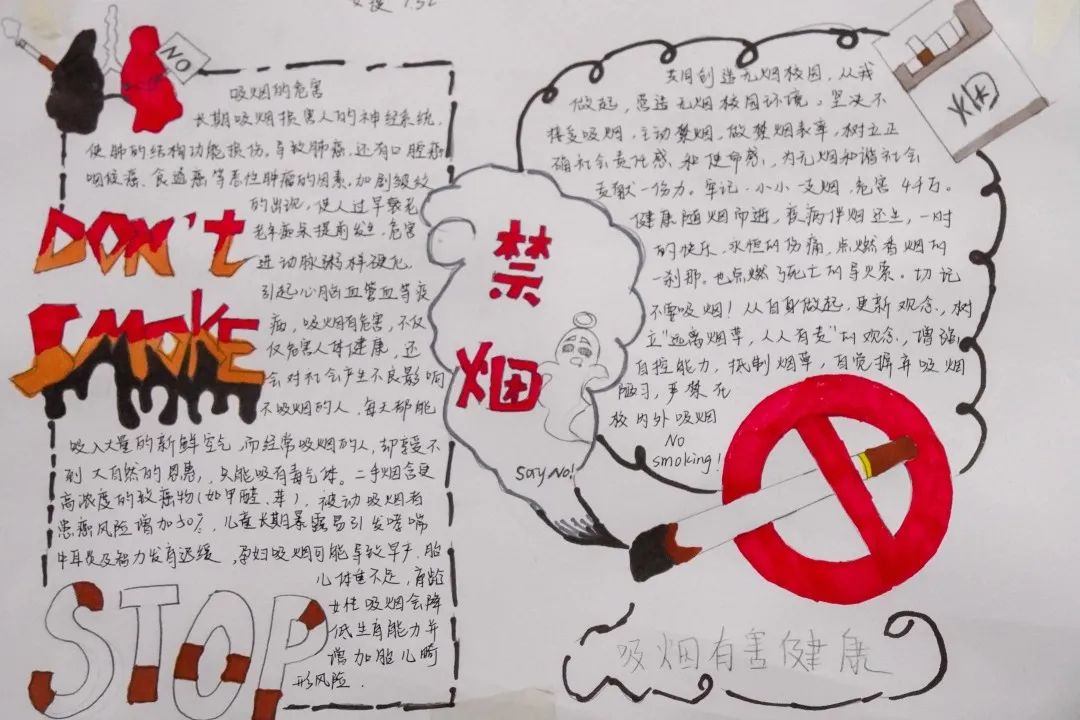 NO
吸烟的危害
长期吸烟损害人的神经系统,
使肺的结构功能损伤,导致肺癌,还有口腔癌
咽喉癌、食道癌等恶性肿瘤的因素,加剧皱纹
的出现,使人过早衰老
老年痴呆提前发生,危害
进动脉粥样硬化
引起心脑血管血等疾
病,吸烟有危害,不仅
仅危害人体健康,还
会对社会产生不良影响
不吸烟的人,每天都能
吸入大量的新鲜空气,而经常吸烟的人,却享受不
到大自然的恩惠,只能吸有毒气体。二手烟含更
高浓度的致癌物(如甲醛、苯),被动吸烟者
患癌风险增加30%,儿童长期暴露易引发哮喘
中耳炎及智力发育迟缓,孕妇吸烟可能导致早产、胎
儿体重不足,育龄
女性吸烟会降
低生育能力并
增加胎儿畸
形风险.
DON't
SMOKE
STOP
禁
烟
say No!
烟
共同创造无烟校园,从我
做起,营造无烟校园环境。坚决不
接受吸烟,主动禁烟,做禁烟表率,树立正
确社会责任感、和使命感,为无烟和谐社会
贡献一份力。牢记:小小一支烟,危害4千万。
健康随烟而逝,疾病伴烟还生,一时
的快乐,永恒的伤痛,点燃香烟的
一刹那。也点燃了死亡的导火索。切记
不要吸烟!从自身做起,更新观念,树
立"远离烟草,人人有责"的观念,增强
自控能力,抵制烟草,自觉摒弃吸烟
陋习,严禁无
校内外吸烟
NO
smoking!
吸烟有害健康